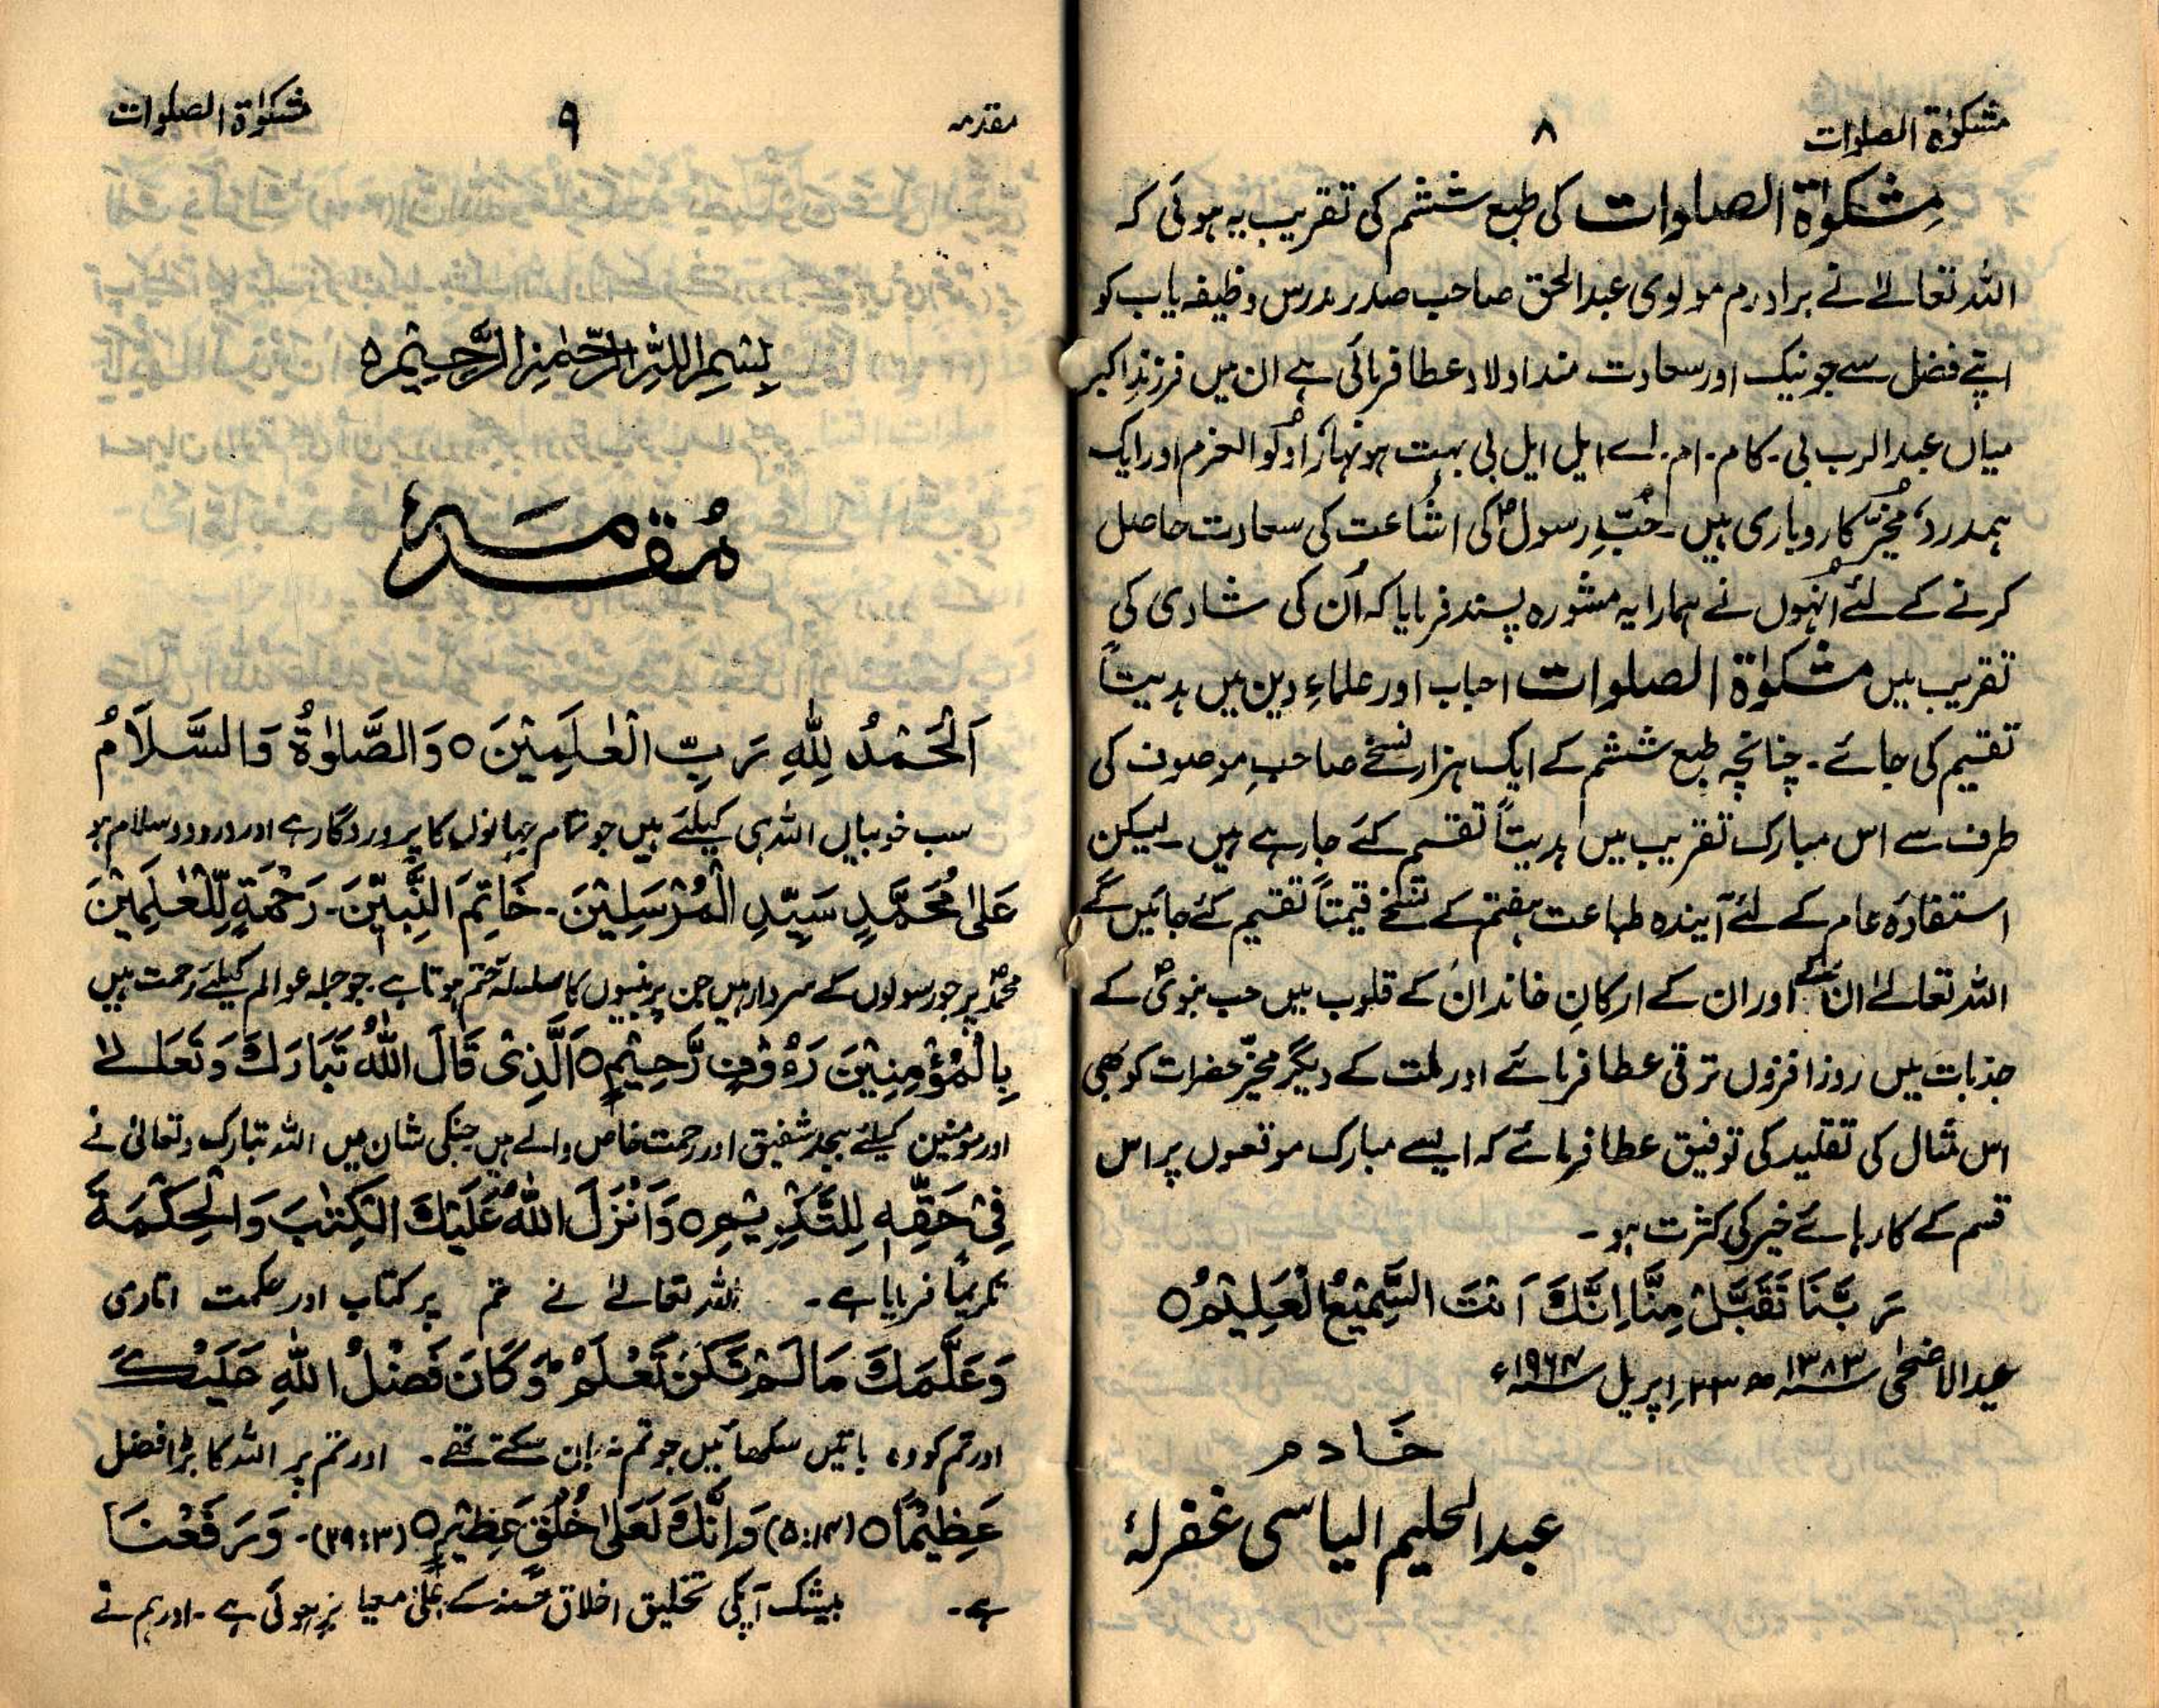 مشکوٰۃ الصلوات
۸
مِشکوٰۃ الصلوات کی طبع ششم کی تقریب یہ ہوئی کہ
اللہ تعالےٰ نے برادرم مولوی عبدالحق صاحب صدر مدرس وظیفہ یاب کو
اپنے فضل سے جو نیک اور سعادت مند اولاد عطا فرمائی ہے ان میں فرزندِ اکبر
میاں عبدالرب بی۔کام۔ام۔اے۔ایل ایل بی بہت ہونہار، اولُوالعزم اور ایک
ہمدرد، مُخیّر کاروباری ہیں۔ حُبِّ رسولؐ کی اشاعت کی سعادت حاصل
کرنے کے لئے اُنہوں نے ہمارا یہ مشورہ پسند فرمایا کہ اُن کی شادی کی
تقریب میں مشکوٰۃ الصلوات احباب اور علماءِ دین میں ہدیتاً
تقسیم کی جائے۔ چنانچہ طبع ششم کے ایک ہزار نسخے صاحبِ موصوف کی
طرف سے اس مبارک تقریب میں ہدیتاً تقسیم کئے جا رہے ہیں۔ لیکن
استفادۂ عام کے لئے آیندہ طباعت ہفتم کے نسخے قیمتاً تقسیم کئے جائیں گے
اللہ تعالےٰ ان کے اور ان کے ارکانِ خاندان کے قلوب میں حب نبویؐ کے
جذبات میں روز افزوں ترقی عطا فرمائے اور ملت کے دیگر مخیّر حضرات کو بھی
اس مثال کی تقلید کی توفیق عطا فرمائے کہ ایسے مبارک موقعوں پر اس
قسم کے کارہائے خیر کی کثرت ہو۔
رَبَّنَا تَقَبَّلْ مِنَّا اِنَّكَ اَنْتَ السَّمِيْعُ الْعَلِيْمُ ○
عیدالاضحیٰ ۱۳۸۳ھ ۲۳؍اپریل ۱۹۶۴ء
خادم
عبدالحلیم الیاسی غفرلہٗ
مقدمہ
۹
مشکوٰۃ الصلوات
بِسْمِ اللّٰهِ الرَّحْمٰنِ الرَّحِيْمِ ○
مُقدمہ
اَلْحَمْدُ لِلّٰهِ رَبِّ الْعٰلَمِيْنَ ○ وَالصَّلوٰةُ وَالسَّلَامُ
سب خوبیاں اللہ ہی کیلئے ہیں جو تمام جہانوں کا پروردگار ہے اور درود و سلام ہو
عَلىٰ مُحَمَّدٍ سَيِّدِ الْمُرْسَلِيْنَ۔ خَاتِمِ النَّبِيّٖنَ۔ رَحْمَةٍ لِّلْعٰلَمِيْنَ
محمدؐ پر جو رسولوں کے سردار ہیں جن پر نبیوں کا سلسلہ ختم ہوتا ہے۔ جو جملہ عوالم کیلئے رحمت ہیں
بِالْمُؤْمِنِيْنَ رَءُوْفٍ رَّحِيْمٍ ○ اَلَّذِىْ قَالَ اللّٰهُ تَبَارَكَ وَتَعَالٰے
اور مومنین کیلئے بیحد شفیق اور رحمت خاص والے ہیں جنکی شان میں اللہ تبارک و تعالیٰ نے
فِىْ حَقِّهٖ لِلتَّكْرِيْمِ ○ وَاَنْزَلَ اللّٰهُ عَلَيْكَ الْكِتٰبَ وَالْحِكْمَةَ
تکریماً فرمایا ہے۔ اللہ تعالےٰ نے تم پر کتاب اور حکمت اتاری
وَعَلَّمَكَ مَا لَمْ تَكُنْ تَعْلَمُ ؕ وَكَانَ فَضْلُ اللّٰهِ عَلَيْكَ
اور تم کو وہ باتیں سکھائیں جو تم نہ جان سکتے تھے۔ اور تم پر اللہ کا بڑا فضل
عَظِيْمًا ○ (۵:۱۴) وَاِنَّكَ لَعَلىٰ خُلُقٍ عَظِيْمٍ ○ (۲۹:۳)۔ وَرَفَعْنَا
ہے۔ بیشک آپکی تخلیق اخلاق حسنہ کے اعلیٰ معیار پر ہوئی ہے۔ اور ہم نے